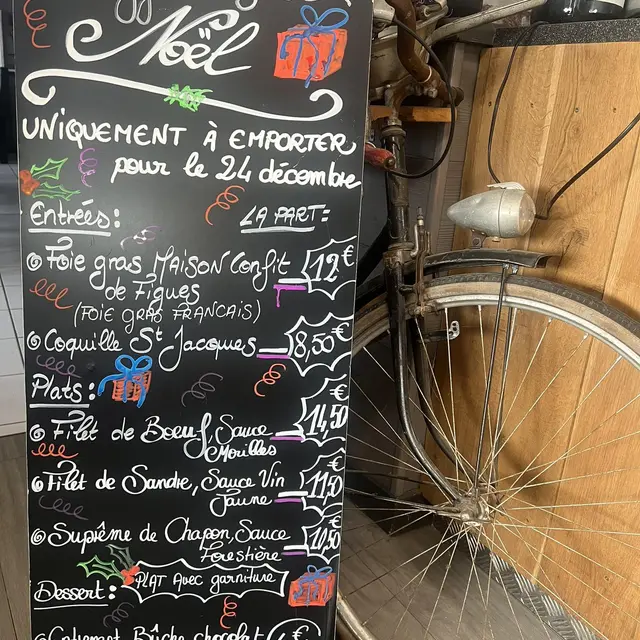 Noël
UNIQUEMENT À EMPORTER
pour le 24 décembre
Entrées: LA PART:
Foie gras MAISON Confit 12€
de Figues
(FOIE GRAS FRANCAIS)
Coquille St Jacques 8,50€
Plats:
Filet de Boeuf, Sauce 14,50€
Morilles
Filet de Sandre, Sauce Vin 11,50€
Jaune
Suprême de Chapon, Sauce 10,50€
Forestière
PLAT Avec garniture
Dessert:
Entremet Bûche chocolat €